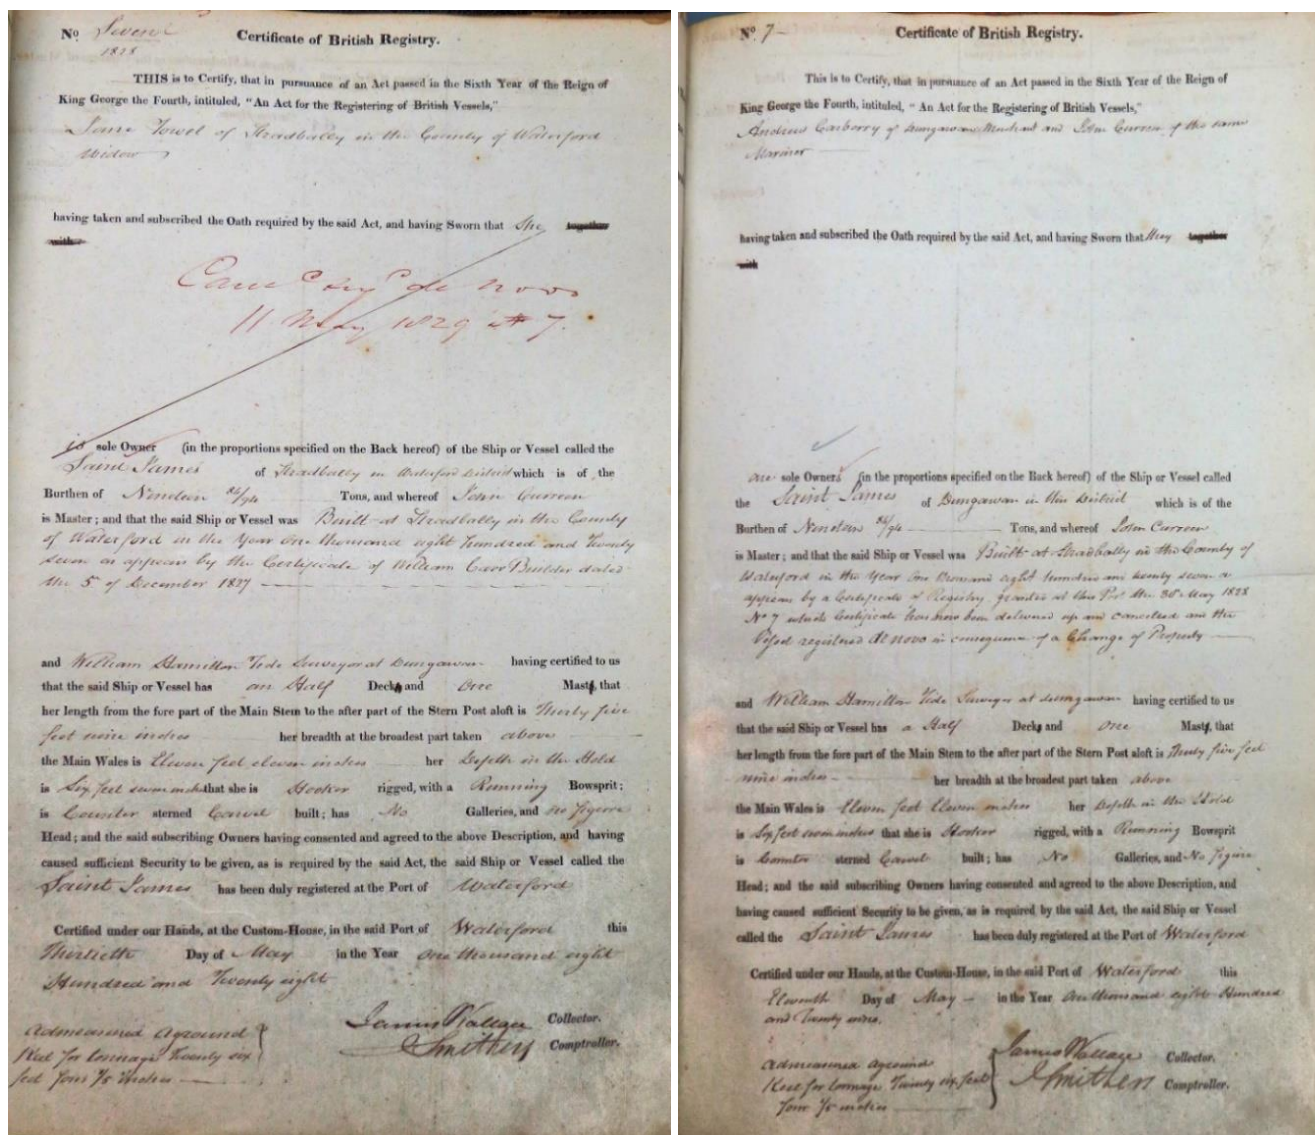 No Seven
1828
Certificate of British Registry.
THIS is to Certify, that in pursuance of an Act passed in the Sixth Year of the Reign of
King George the Fourth, intituled, "An Act for the Registering of British Vessels,"
Jane Towel of Stradbally in the County of Waterford
Widow
having taken and subscribed the Oath required by the said Act, and having Sworn that She together
with
de novo
11 May 1829 # 7.
is sole Owner (in the proportions specified on the Back hereof) of the Ship or Vessel called the
Saint James of Stradbally in Waterford District which is of the
Burthen of Nineteen 84/94 Tons, and whereof John Curreen
is Master; and that the said Ship or Vessel was Built at Stradbally in the County
of Waterford in the Year One thousand eight hundred and Twenty
seven as appears by the Certificate of William Carr Builder dated
the 5 of December 1827
and William Hamilton Tide Surveyor at Dungarvan having certified to us
that the said Ship or Vessel has an Half Deck and One Mast, that
her length from the fore part of the Main Stem to the after part of the Stern Post aloft is Thirty five
feet nine inches her breadth at the broadest part taken above
the Main Wales is Eleven feet eleven inches her Depth in the Hold
is Six feet seven inches that she is Hooker rigged, with a Running Bowsprit;
is Counter sterned Carvel built; has No Galleries, and no figure
Head; and the said subscribing Owners having consented and agreed to the above Description, and having
caused sufficient Security to be given, as is required by the said Act, the said Ship or Vessel called the
Saint James has been duly registered at the Port of Waterford
Certified under our Hands, at the Custom-House, in the said Port of Waterford this
Thirtieth Day of May in the Year One thousand eight
Hundred and Twenty eight
James Wallace Collector.
J Smithers Comptroller.
Admeasured Aground
Keel for tonnage Twenty six
feet four 1/5 inches
No 7
Certificate of British Registry.
This is to Certify, that in pursuance of an Act passed in the Sixth Year of the Reign of
King George the Fourth, intituled, "An Act for the Registering of British Vessels,"
Andrew Carberry of Dungarvan Merchant and John Curreen of the same
Mariner
having taken and subscribed the Oath required by the said Act, and having Sworn that they together
with
are sole Owners (in the proportions specified on the Back hereof) of the Ship or Vessel called
the Saint James of Dungarvan in this District which is of the
Burthen of Nineteen 84/94 Tons, and whereof John Curreen
is Master; and that the said Ship or Vessel was Built at Stradbally in the County of
Waterford in the Year One thousand eight hundred and twenty seven as
appears by a Certificate of Registry granted at this Port the 30 May 1828
No 7 which Certificate has now been delivered up and cancelled and the
Vessel registered de novo in consequence of a Change of Property
and William Hamilton Tide Surveyor at Dungarvan having certified to us
that the said Ship or Vessel has a Half Deck and One Mast, that
her length from the fore part of the Main Stem to the after part of the Stern Post aloft is Thirty five feet
nine inches her breadth at the broadest part taken above
the Main Wales is Eleven feet Eleven inches her Depth in the Hold
is Six feet seven inches that she is Hooker rigged, with a Running Bowsprit
is Counter sterned Carvel built; has No Galleries, and No figure
Head; and the said subscribing Owners having consented and agreed to the above Description, and
having caused sufficient Security to be given, as is required by the said Act, the said Ship or Vessel
called the Saint James has been duly registered at the Port of Waterford
Certified under our Hands, at the Custom-House, in the said Port of Waterford this
Eleventh Day of May in the Year One thousand eight Hundred
and Twenty nine.
James Wallace Collector.
J Smithers Comptroller.
Admeasured Aground
Keel for tonnage Twenty six feet
four 1/5 inches